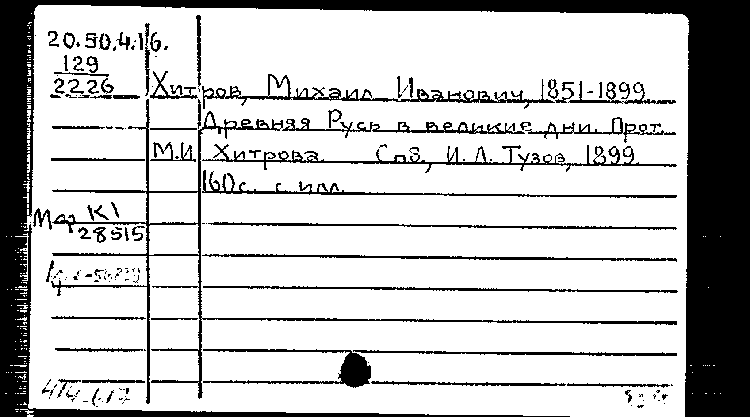 20.50.4.16.
129
2226
Хитров, Михаил Иванович, 1851-1899
Древняя Русь в великие дни. Прот.
М.И. Хитрова. Спб., И.Л. Тузов, 1899.
160с. с илл.
Мф К1
28515
414-617